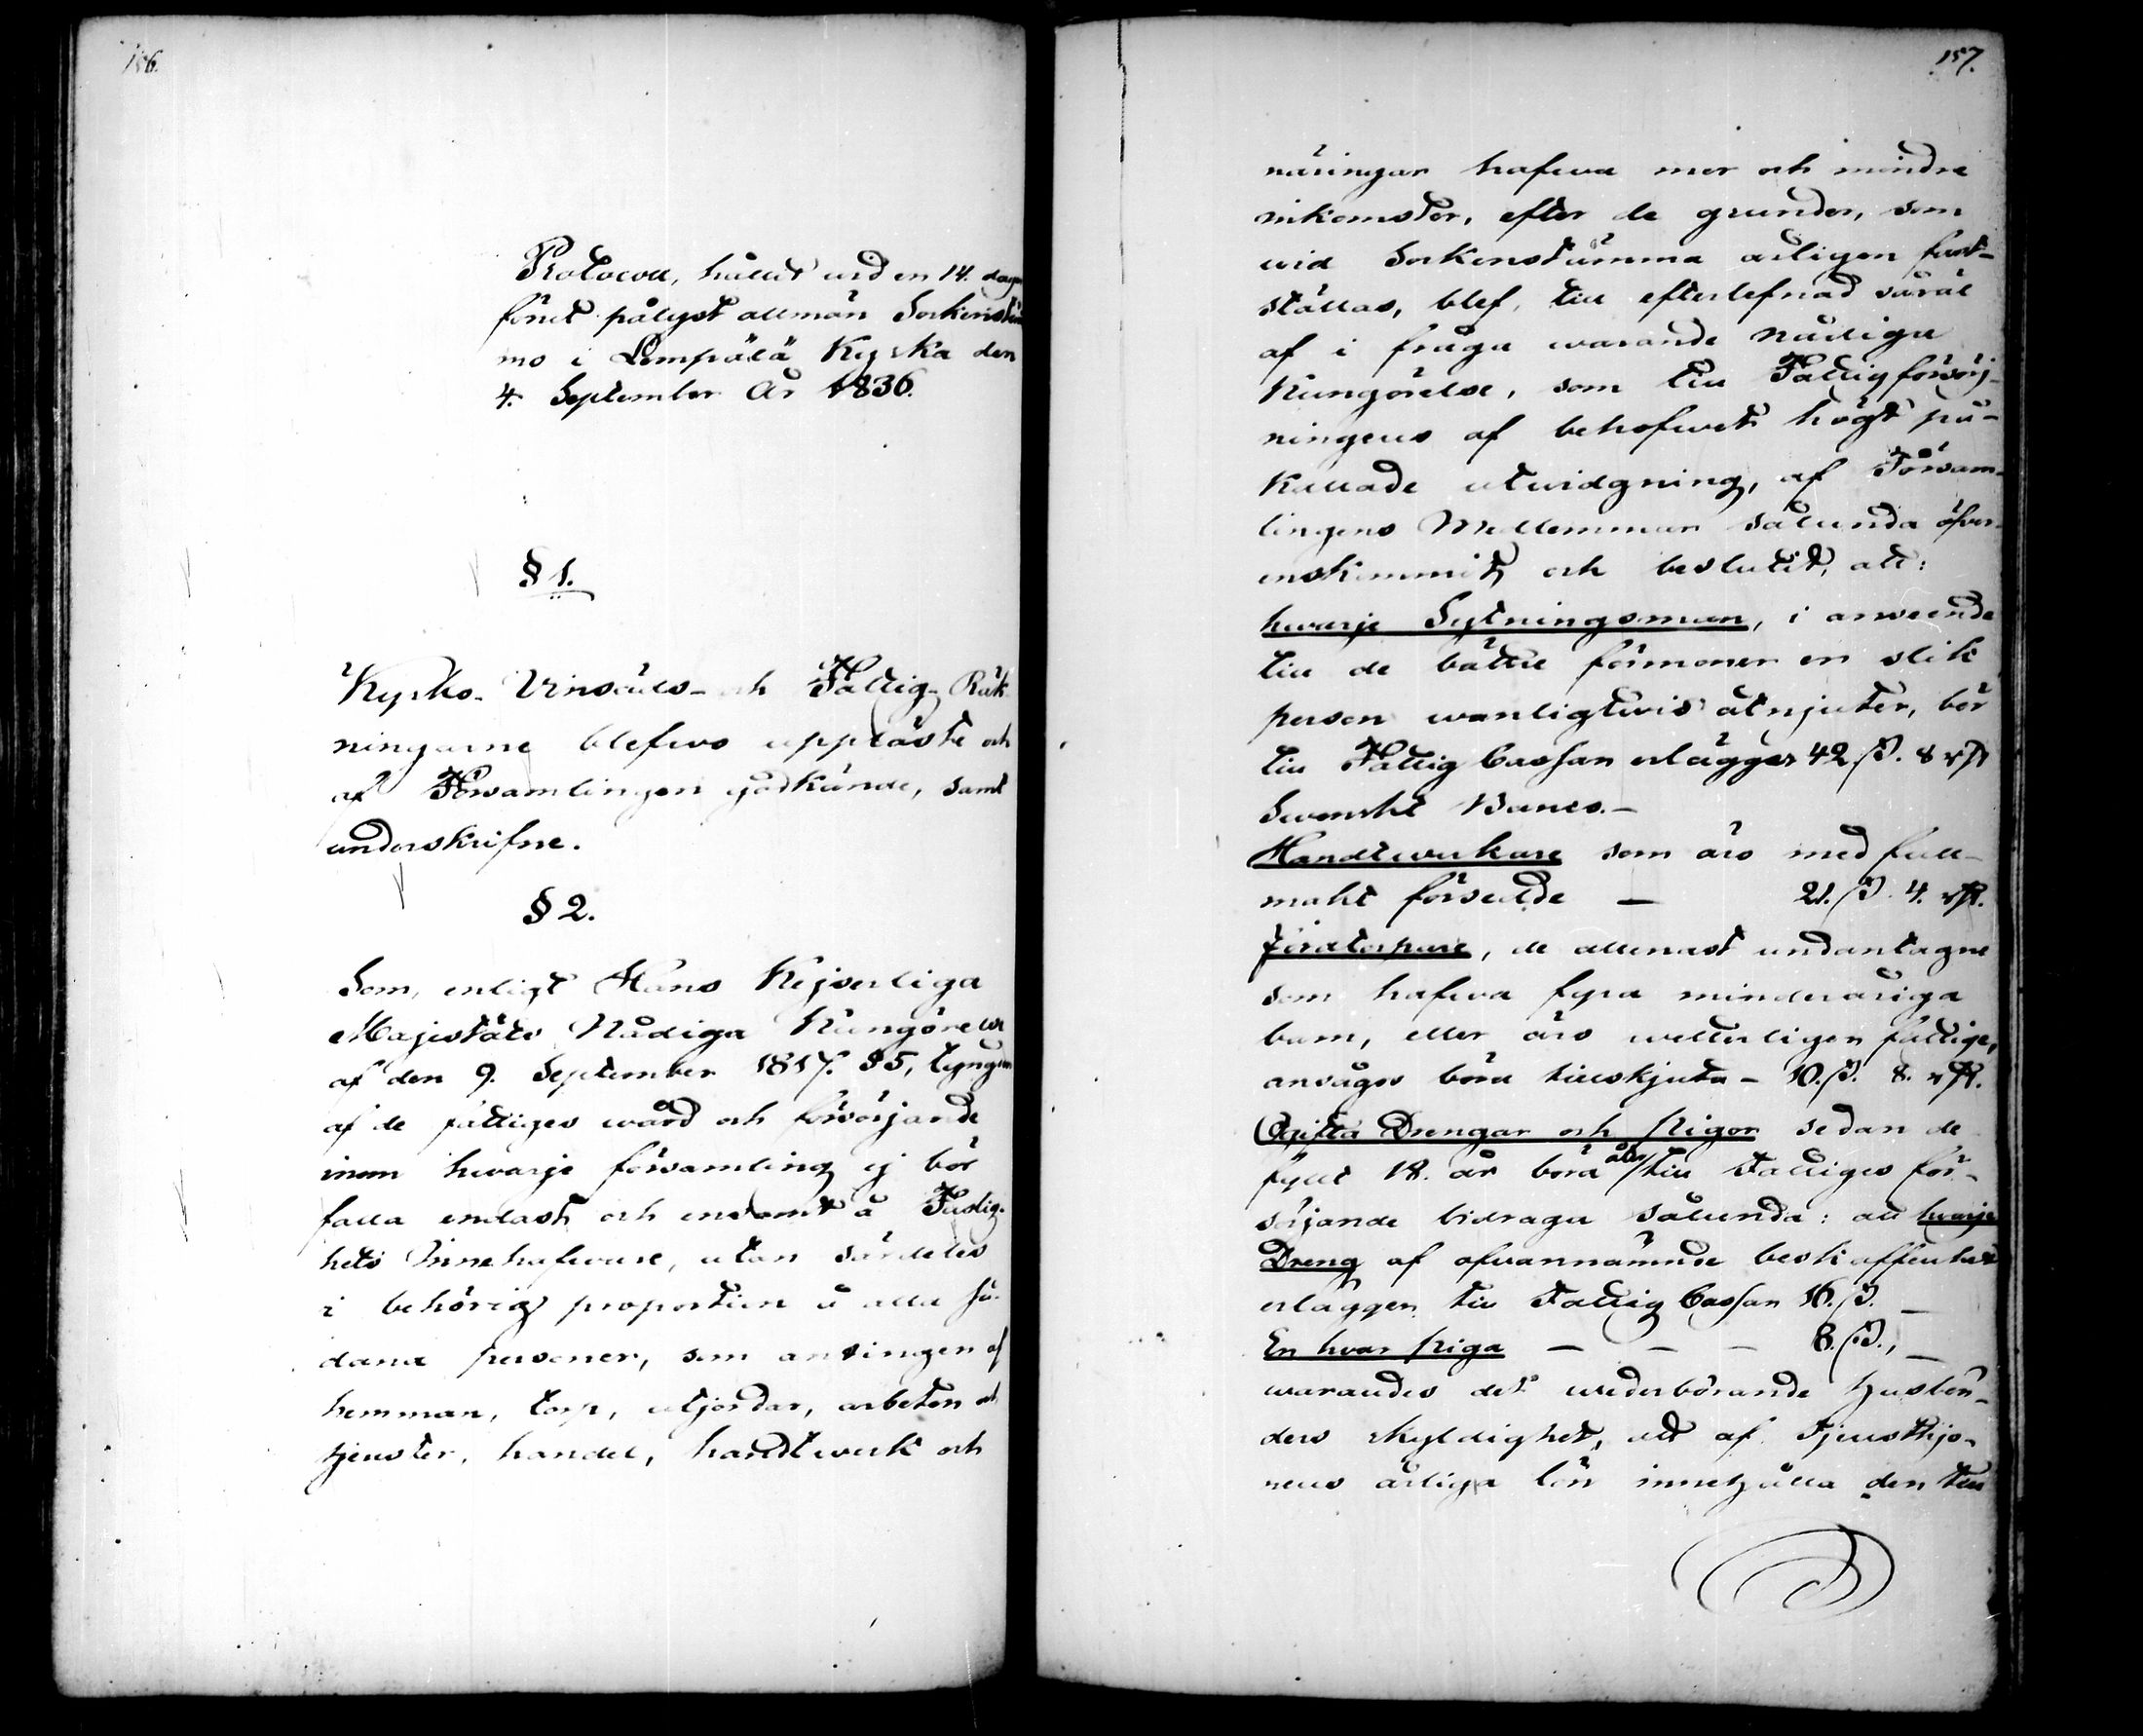 156.
Protocoll, hållit vid en 14. dagar
förut pålyst allmän Sockenstäm
mo i Lempälä Kyrka den
4. September År 1836.
§ 1.
Kyrko- Vinsäds- och Fattig- Räk
ningarne blefvo uppläste och
af Församlingen godkände, samt
underskrifne.
§ 2.
Som, enligt Hans Kejserliga
Majestäts Nådiga Kungörelse
af den 9. September 1817. § 5, tyngden
af de fattiges wård och försörjande
inom hwarje församling ej bör
falla endast och ensamt å Fastig-
hets Innehafware, utan särdeles
i behörig proportion å alla så-
dana personer, som antingen af
hemman, torp, utjordar, arbeten och
tjenster, handel, handtwerk och
157.
näringar hafwa mer och mindre
inkomster, efter de grunder, som
wid Sockenstämma årligen fast-
ställas, blef, till efterlefnad såväl
af i fråga warande Nådiga
Kungörelse, som till Fattigförsörj-
ningens af behofwet högt på-
kallade utvidgning, af Försam-
lingens Medlemmar sålunda öfver-
enskommit och beslutit, att:
hwarje Sytningsman, i anseende
till de bättre förmoner en slik
person wanligtvis åtnjuter, bör
till Fattig Cassan erlägger 42 ß. 8 rst
Swenskt Banco.—
Handtwerkare som äro med full-
makt försedde — 21. ß. 4. rst.
Jordtorpare, de allenast undantagne
som hafwa fyra minderåriga
barn, eller äro wetterligen fattige,
ansågos böra tillskjuta — 10. ß. 8. rst.
Ogifta Drengar och Pigor sedan de
fyllt 18. år böra åter till Fattiges för-
sörjande bidraga sålunda: att hwarje
Dreng af ofvannämnde beskaffenhet
erlägger till Fattig Cassan 16. ß. —
En hvar Piga — — — 8. ß., —
warandes det wederbörande Husbön-
ders skyldighet, att af Tjensthjo-
nens årliga lön innehålla den till